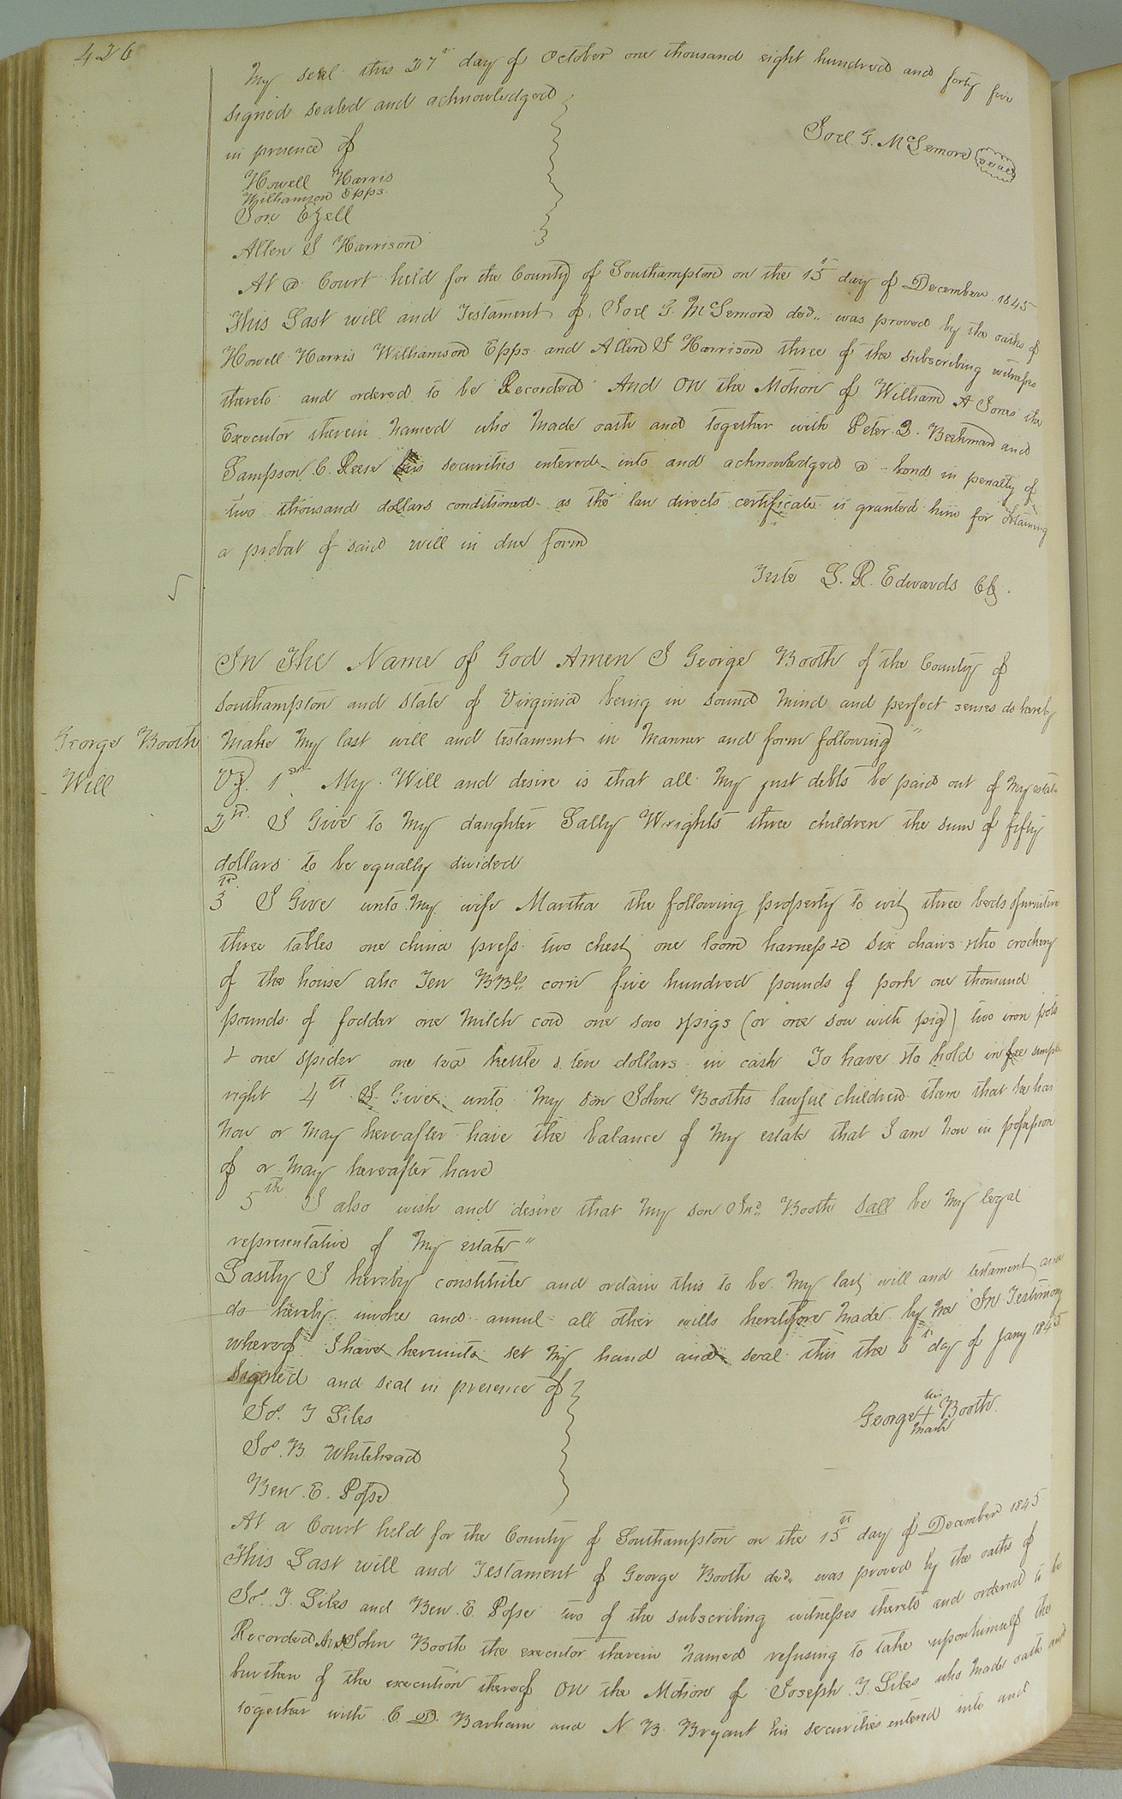 426
My seal this 27th day of October one thousand eight hundred and forty five
signed sealed and acknowledged
in presence of
Joel G. McLemore seal
Howell Harris
Williamson Epps
Jon Ezell
Allen J Harrison
At a Court held for the County of Southampton on the 15th day of December 1845
This Last will and Testament of Joel G. McLemore decd. was proved by the oaths of
Howell Harris Williamson Epps and Allen J Harrison three of the subscribing witnesses
thereto and ordered to be Recorded And on the Motion of William A Jones the
Executor therein named who made oath and together with Peter B. Beekman and
Sampson C. Reese his securities entered into and acknowledged a bond in penalty of
two thousand dollars conditioned as the law directs certificate is granted him for obtaining
a probat of said will in due form
Teste L. R. Edwards Clk.
In The Name of God Amen I George Booth of the County of
Southampton and State of Virginia being in sound mind and perfect senses do hereby
George Booth
Will
Make My last will and testament in Manner and form following
Viz. 1st My Will and desire is that all My just debts be paid out of My estate
2nd. I Give to My daughter Sally Wrights three children the sum of fifty
dollars to be equally divided
3rd I Give unto My wife Martha the following property to wit, three beds & furniture
three tables one china press two chests one loom harness &c six chairs & the crockery
of the house also Ten BBls corn five hundred pounds of pork one thousand
pounds of fodder one Milch cow one sow & pigs (or one sow with pig) two iron pots
& one spider one tea kettle & ten dollars in cash To have & to hold in fee simple
right 4th I Give unto My son John Booths lawful children them that he has
now or May hereafter have the balance of My estate that I am now in possession
of or May hereafter have
5th I also wish and desire that My son Jno. Booth sall be My legal
representative of My estate"
Lastly I hereby constitute and ordain this to be My last will and testament and
do hereby invoke and annul all other wills heretofore made by me In Testimony
whereof I have hereunto set My hand and seal this the 6th day of Jany 1845
Signed and seal in presence of
George his + mark Booth.
Jos. T Liles
Jos. B. Whitehead
Ben. E. Pope
At a Court held for the County of Southampton on the 15th day of December 1845
This Last will and Testament of George Booth decd. was proved by the oaths of
Jos. T. Liles and Ben. E. Pope two of the subscribing witnesses thereto and ordered to be
Recorded And John Booth the executor therein named refusing to take upon himself the
burthen of the execution thereof on the Motion of Joseph T. Liles who made oath and
together with E D. Barham and N B. Bryant his securities entered into and